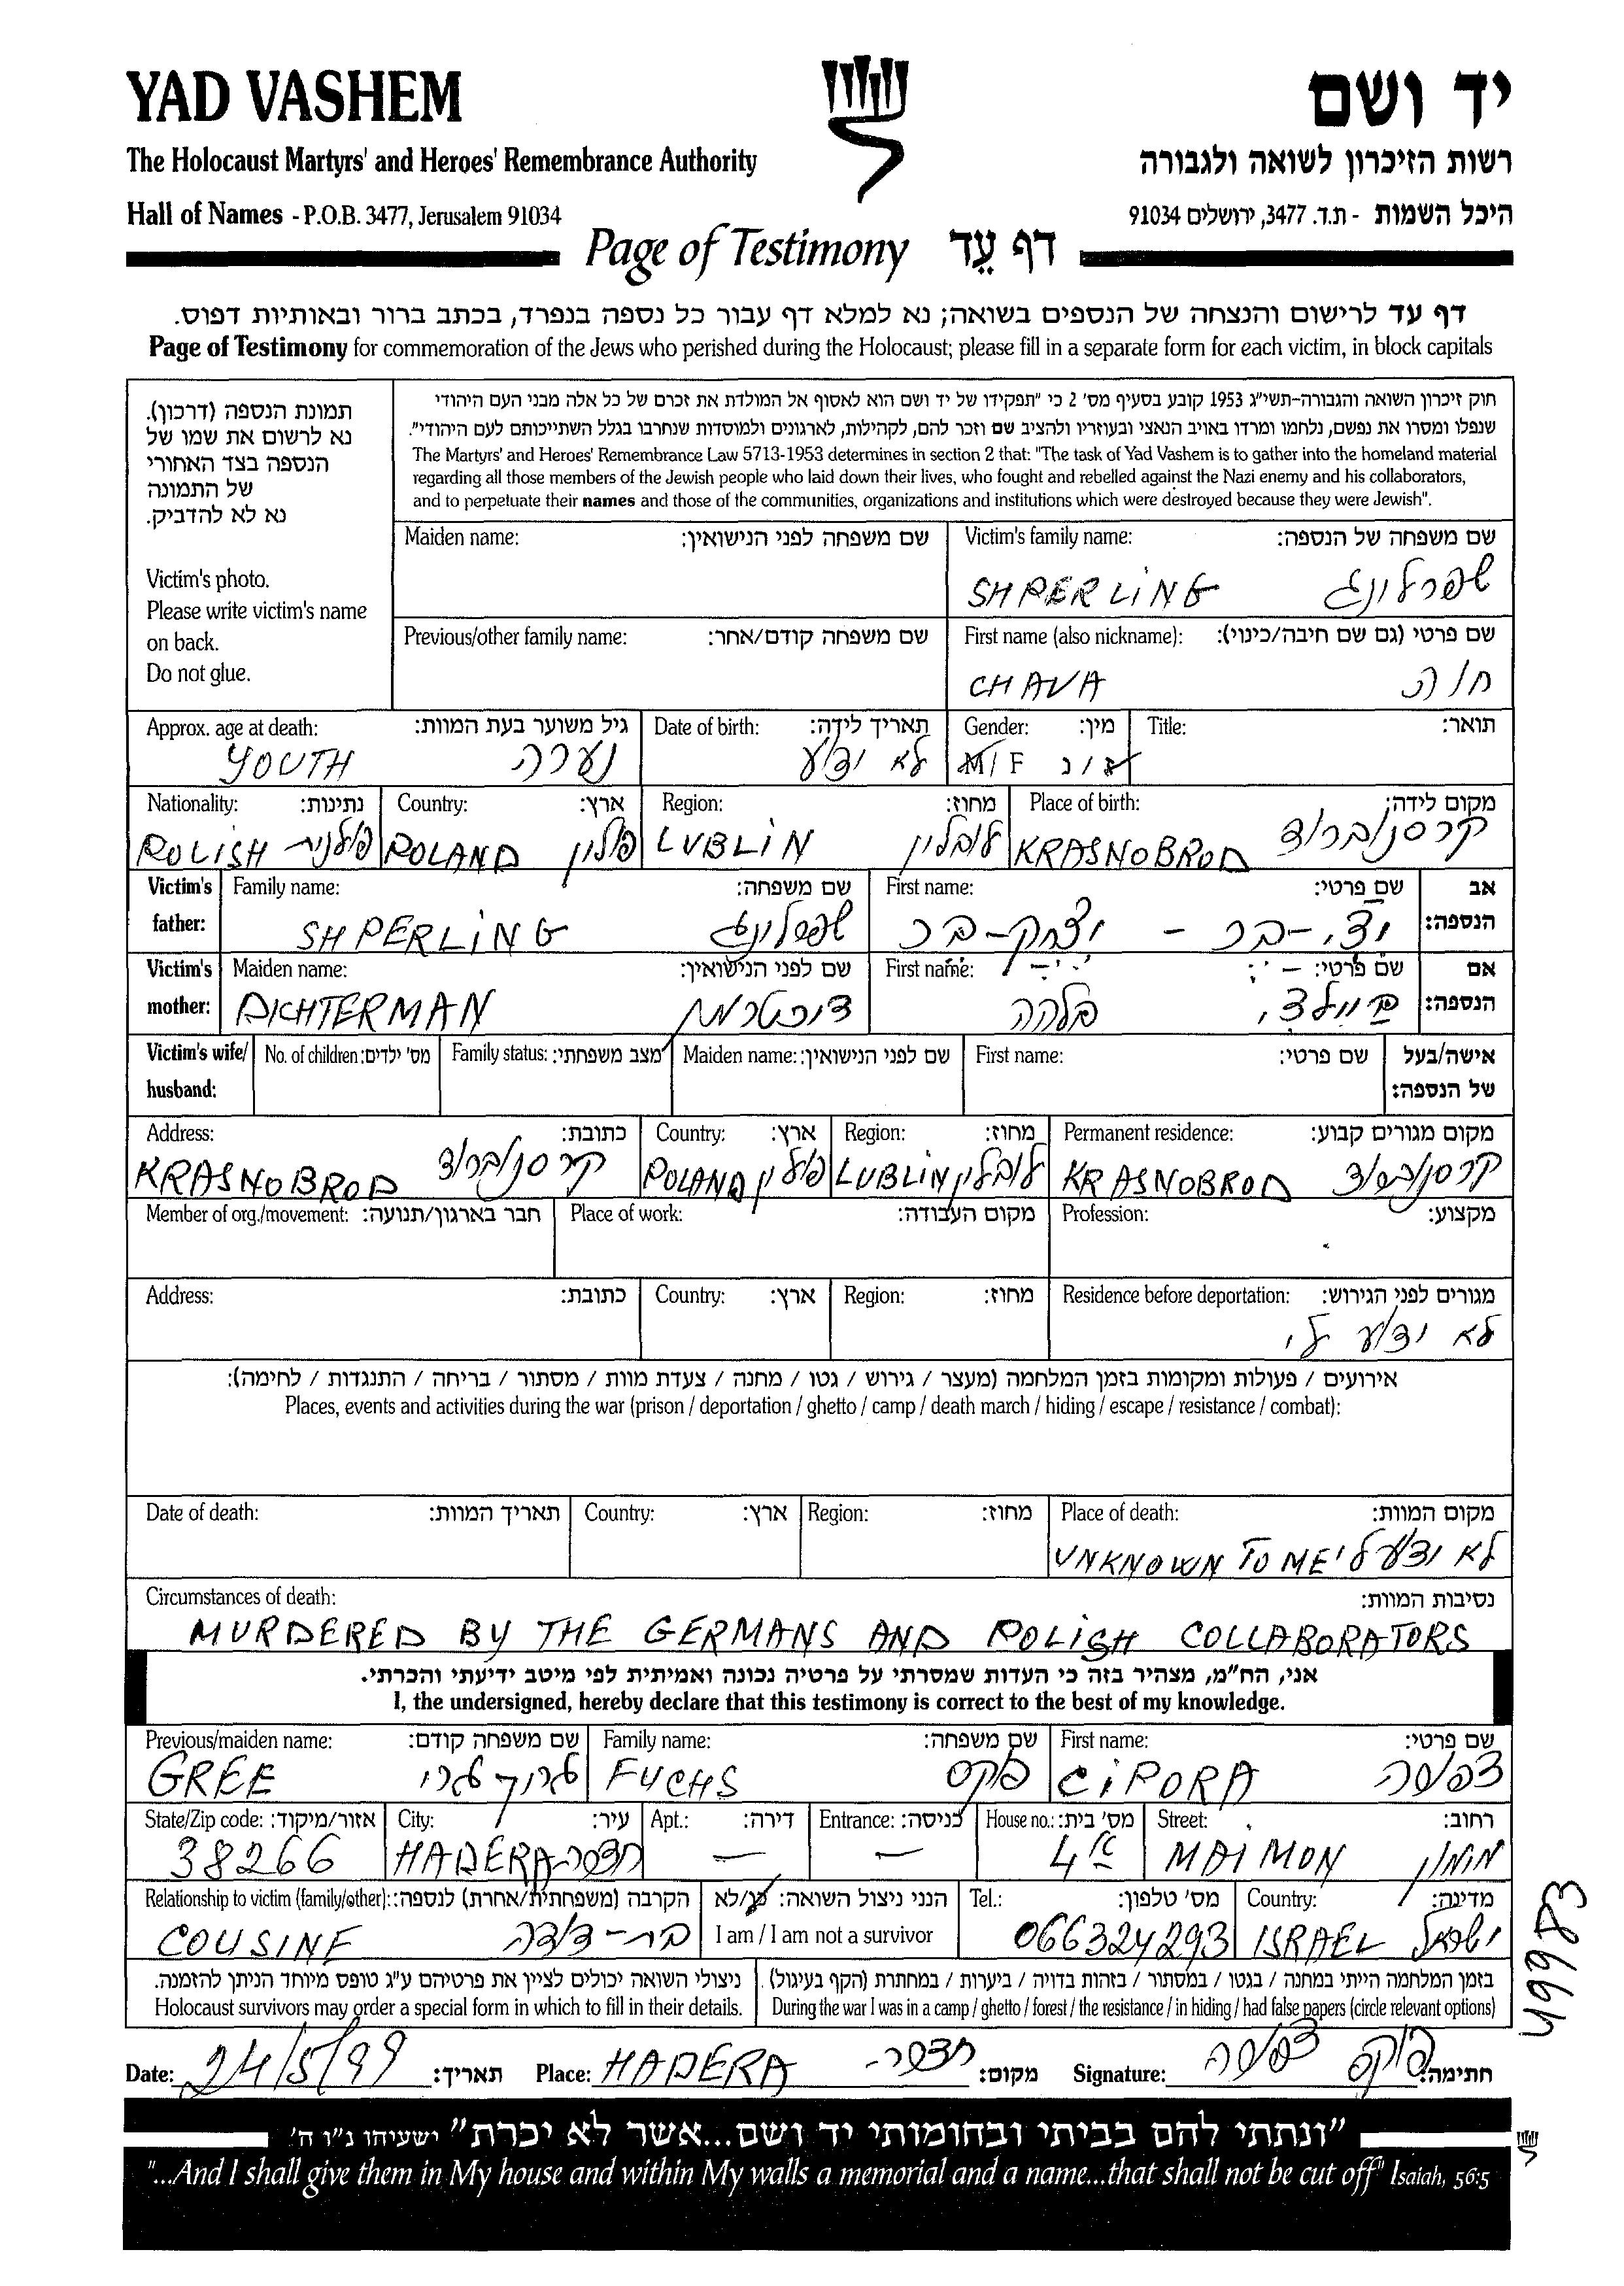 YAD VASHEM יד ושם
The Holocaust Martyrs' and Heroes' Remembrance Authority רשות הזיכרון לשואה ולגבורה
Hall of Names - P.O.B. 3477, Jerusalem 91034 היכל השמות - ת.ד. 3477, ירושלים 91034
Page of Testimony דף עֵד
דף עד לרישום והנצחה של הנספים בשואה; נא למלא דף עבור כל נספה בנפרד, בכתב ברור ובאותיות דפוס.
Page of Testimony for commemoration of the Jews who perished during the Holocaust; please fill in a separate form for each victim, in block capitals
תמונת הנספה (דרכון).
נא לרשום את שמו של
הנספה בצד האחורי
של התמונה
נא לא להדביק.
Victim's photo.
Please write victim's name
on back.
Do not glue.
חוק זיכרון השואה והגבורה-תשי"ג 1953 קובע בסעיף מס' 2 כי "תפקידו של יד ושם הוא לאסוף אל המולדת את זכרם של כל אלה מבני העם היהודי
שנפלו ומסרו את נפשם, נלחמו ומרדו באויב הנאצי ובעוזריו ולהציב שם וזכר להם, לקהילות, לארגונים ולמוסדות שנחרבו בגלל השתייכותם לעם היהודי".
The Martyrs' and Heroes' Remembrance Law 5713-1953 determines in section 2 that: "The task of Yad Vashem is to gather into the homeland material
regarding all those members of the Jewish people who laid down their lives, who fought and rebelled against the Nazi enemy and his collaborators,
and to perpetuate their names and those of the communities, organizations and institutions which were destroyed because they were Jewish".
Maiden name: שם משפחה לפני הנישואין: Victim's family name: שם משפחה של הנספה:
SHPERLING שפרלינג
Previous/other family name: שם משפחה קודם/אחר: First name (also nickname): שם פרטי (גם שם חיבה/כינוי):
CHAVA חוה
Approx. age at death: גיל משוער בעת המוות: Date of birth: תאריך לידה: Gender: מין: Title: תואר:
YOUTH נערה לא ידוע M/F ז/נ
Nationality: נתינות: Country: ארץ: Region: מחוז: Place of birth: מקום לידה:
POLISH פולנית POLAND פולין LUBLIN לובלין KRASNOBROD קרסנוברוד
Victim's father: Family name: שם משפחה: First name: שם פרטי: אב הנספה:
SHPERLING שפרלינג
Victim's mother: Maiden name: שם לפני הנישואין: First name: שם פרטי: אם הנספה:
DICHTERMAN דיכטרמן
Victim's wife/ husband: No. of children: מס' ילדים: Family status: מצב משפחתי: Maiden name: שם לפני הנישואין: First name: שם פרטי: אישה/בעל של הנספה:
Address: כתובת: Country: ארץ: Region: מחוז: Permanent residence: מקום מגורים קבוע:
KRASNOBROD קרסנוברוד POLAND פולין LUBLIN לובלין KRASNOBROD קרסנוברוד
Member of org./movement: חבר בארגון/תנועה: Place of work: מקום העבודה: Profession: מקצוע:
Address: כתובת: Country: ארץ: Region: מחוז: Residence before deportation: מגורים לפני הגירוש:
לא ידוע לי
אירועים / פעולות ומקומות בזמן המלחמה (מעצר / גירוש / גטו / מחנה / צעדת מוות / מסתור / בריחה / התנגדות / לחימה):
Places, events and activities during the war (prison / deportation / ghetto / camp / death march / hiding / escape / resistance / combat):
Date of death: תאריך המוות: Country: ארץ: Region: מחוז: Place of death: מקום המוות:
UNKNOWN TO ME לא ידוע לי
Circumstances of death: נסיבות המוות:
MURDERED BY THE GERMANS AND POLISH COLLABORATORS
אני, הח"מ, מצהיר בזה כי העדות שמסרתי על פרטיה נכונה ואמיתית לפי מיטב ידיעתי והכרתי.
I, the undersigned, hereby declare that this testimony is correct to the best of my knowledge.
Previous/maiden name: שם משפחה קודם: Family name: שם משפחה: First name: שם פרטי:
GREE FUCHS פוקס CIPORA צפורה
State/Zip code: אזור/מיקוד: City: עיר: Apt.: דירה: Entrance: כניסה: House no.: מס' בית: Street: רחוב:
38266 HADERA חדרה — — 4א MAIMON מימון
Relationship to victim (family/other): הקרבה (משפחתית/אחרת) לנספה: הנני ניצול השואה: כן/לא Tel.: מס' טלפון: Country: מדינה:
COUSINE בת-דודה I am / I am not a survivor 066324293 ISRAEL ישראל
ניצולי השואה יכולים לציין את פרטיהם ע"ג טופס מיוחד הניתן להזמנה. בזמן המלחמה הייתי במחנה / בגטו / במסתור / בזהות בדויה / ביערות / במחתרת (הקף בעיגול).
Holocaust survivors may order a special form in which to fill in their details. During the war I was in a camp / ghetto / forest / the resistance / in hiding / had false papers (circle relevant options)
49983
Date: 24/5/99 תאריך: Place: HADERA חדרה מקום: Signature: צפורה פוקס חתימה:
"ונתתי להם בביתי ובחומותי יד ושם...אשר לא יכרת" ישעיהו נ"ו ה'
"...And I shall give them in My house and within My walls a memorial and a name...that shall not be cut off" Isaiah, 56:5